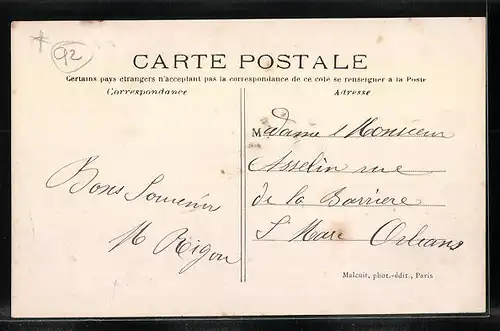 92
CARTE POSTALE
Certains pays étrangers n'acceptant pas la correspondance de ce côté se renseigner à la Poste
Correspondance
Adresse
Madame & Monsieur
Asselin rue
de la Barriere
St Marc Orleans
Bons Souvenir
M Rigou
Malcuit, phot.-édit., Paris